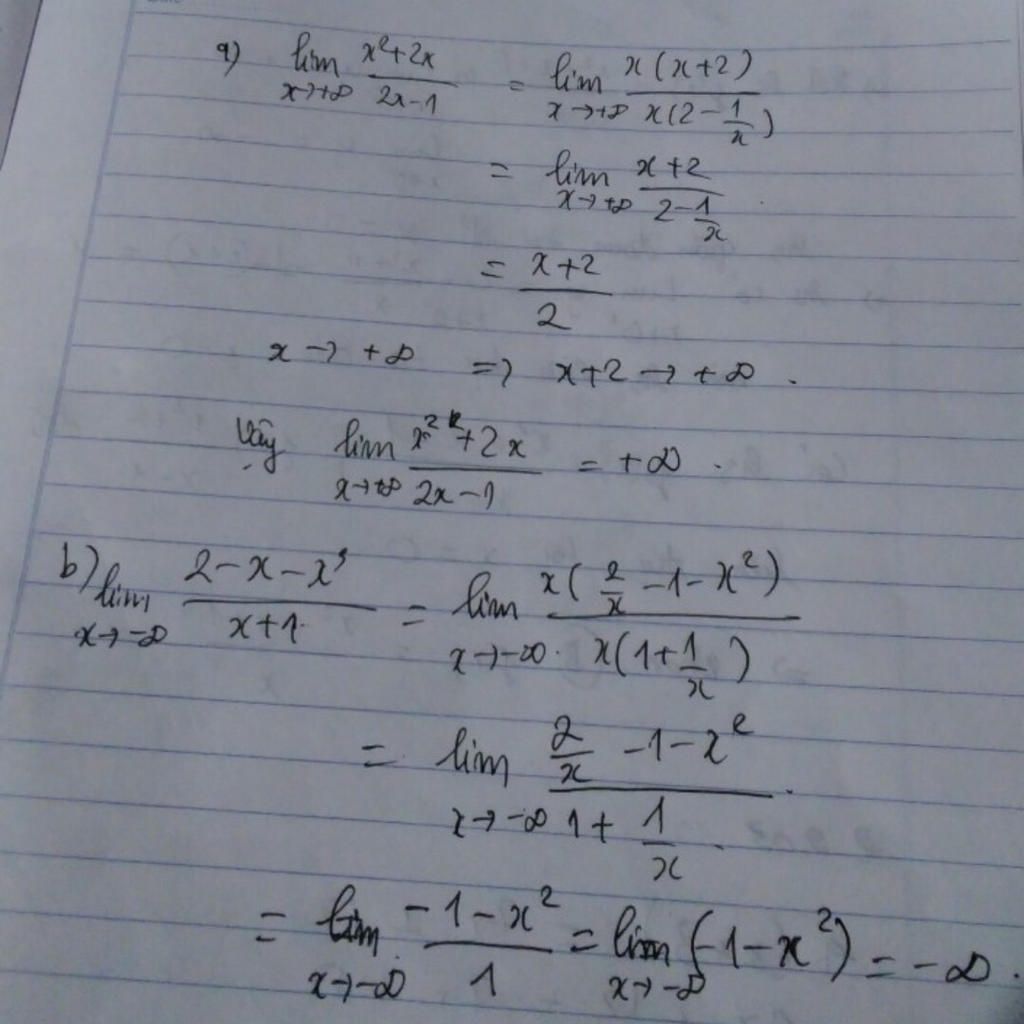 a) lim x→+∞ (x²+2x)/(2x-1) = lim x→+∞ x(x+2)/x(2-1/x)
= lim x→+∞ (x+2)/(2-1/x)
= (x+2)/2
x → +∞ => x+2 → +∞.
Vậy lim x→+∞ (x²+2x)/(2x-1) = +∞.
b) lim x→-∞ (2-x-x³)/(x+1) = lim x→-∞ x(2/x-1-x²)/x(1+1/x)
= lim x→-∞ (2/x-1-x²)/(1+1/x).
= lim x→-∞ (-1-x²)/1 = lim x→-∞ (-1-x²) = -∞.